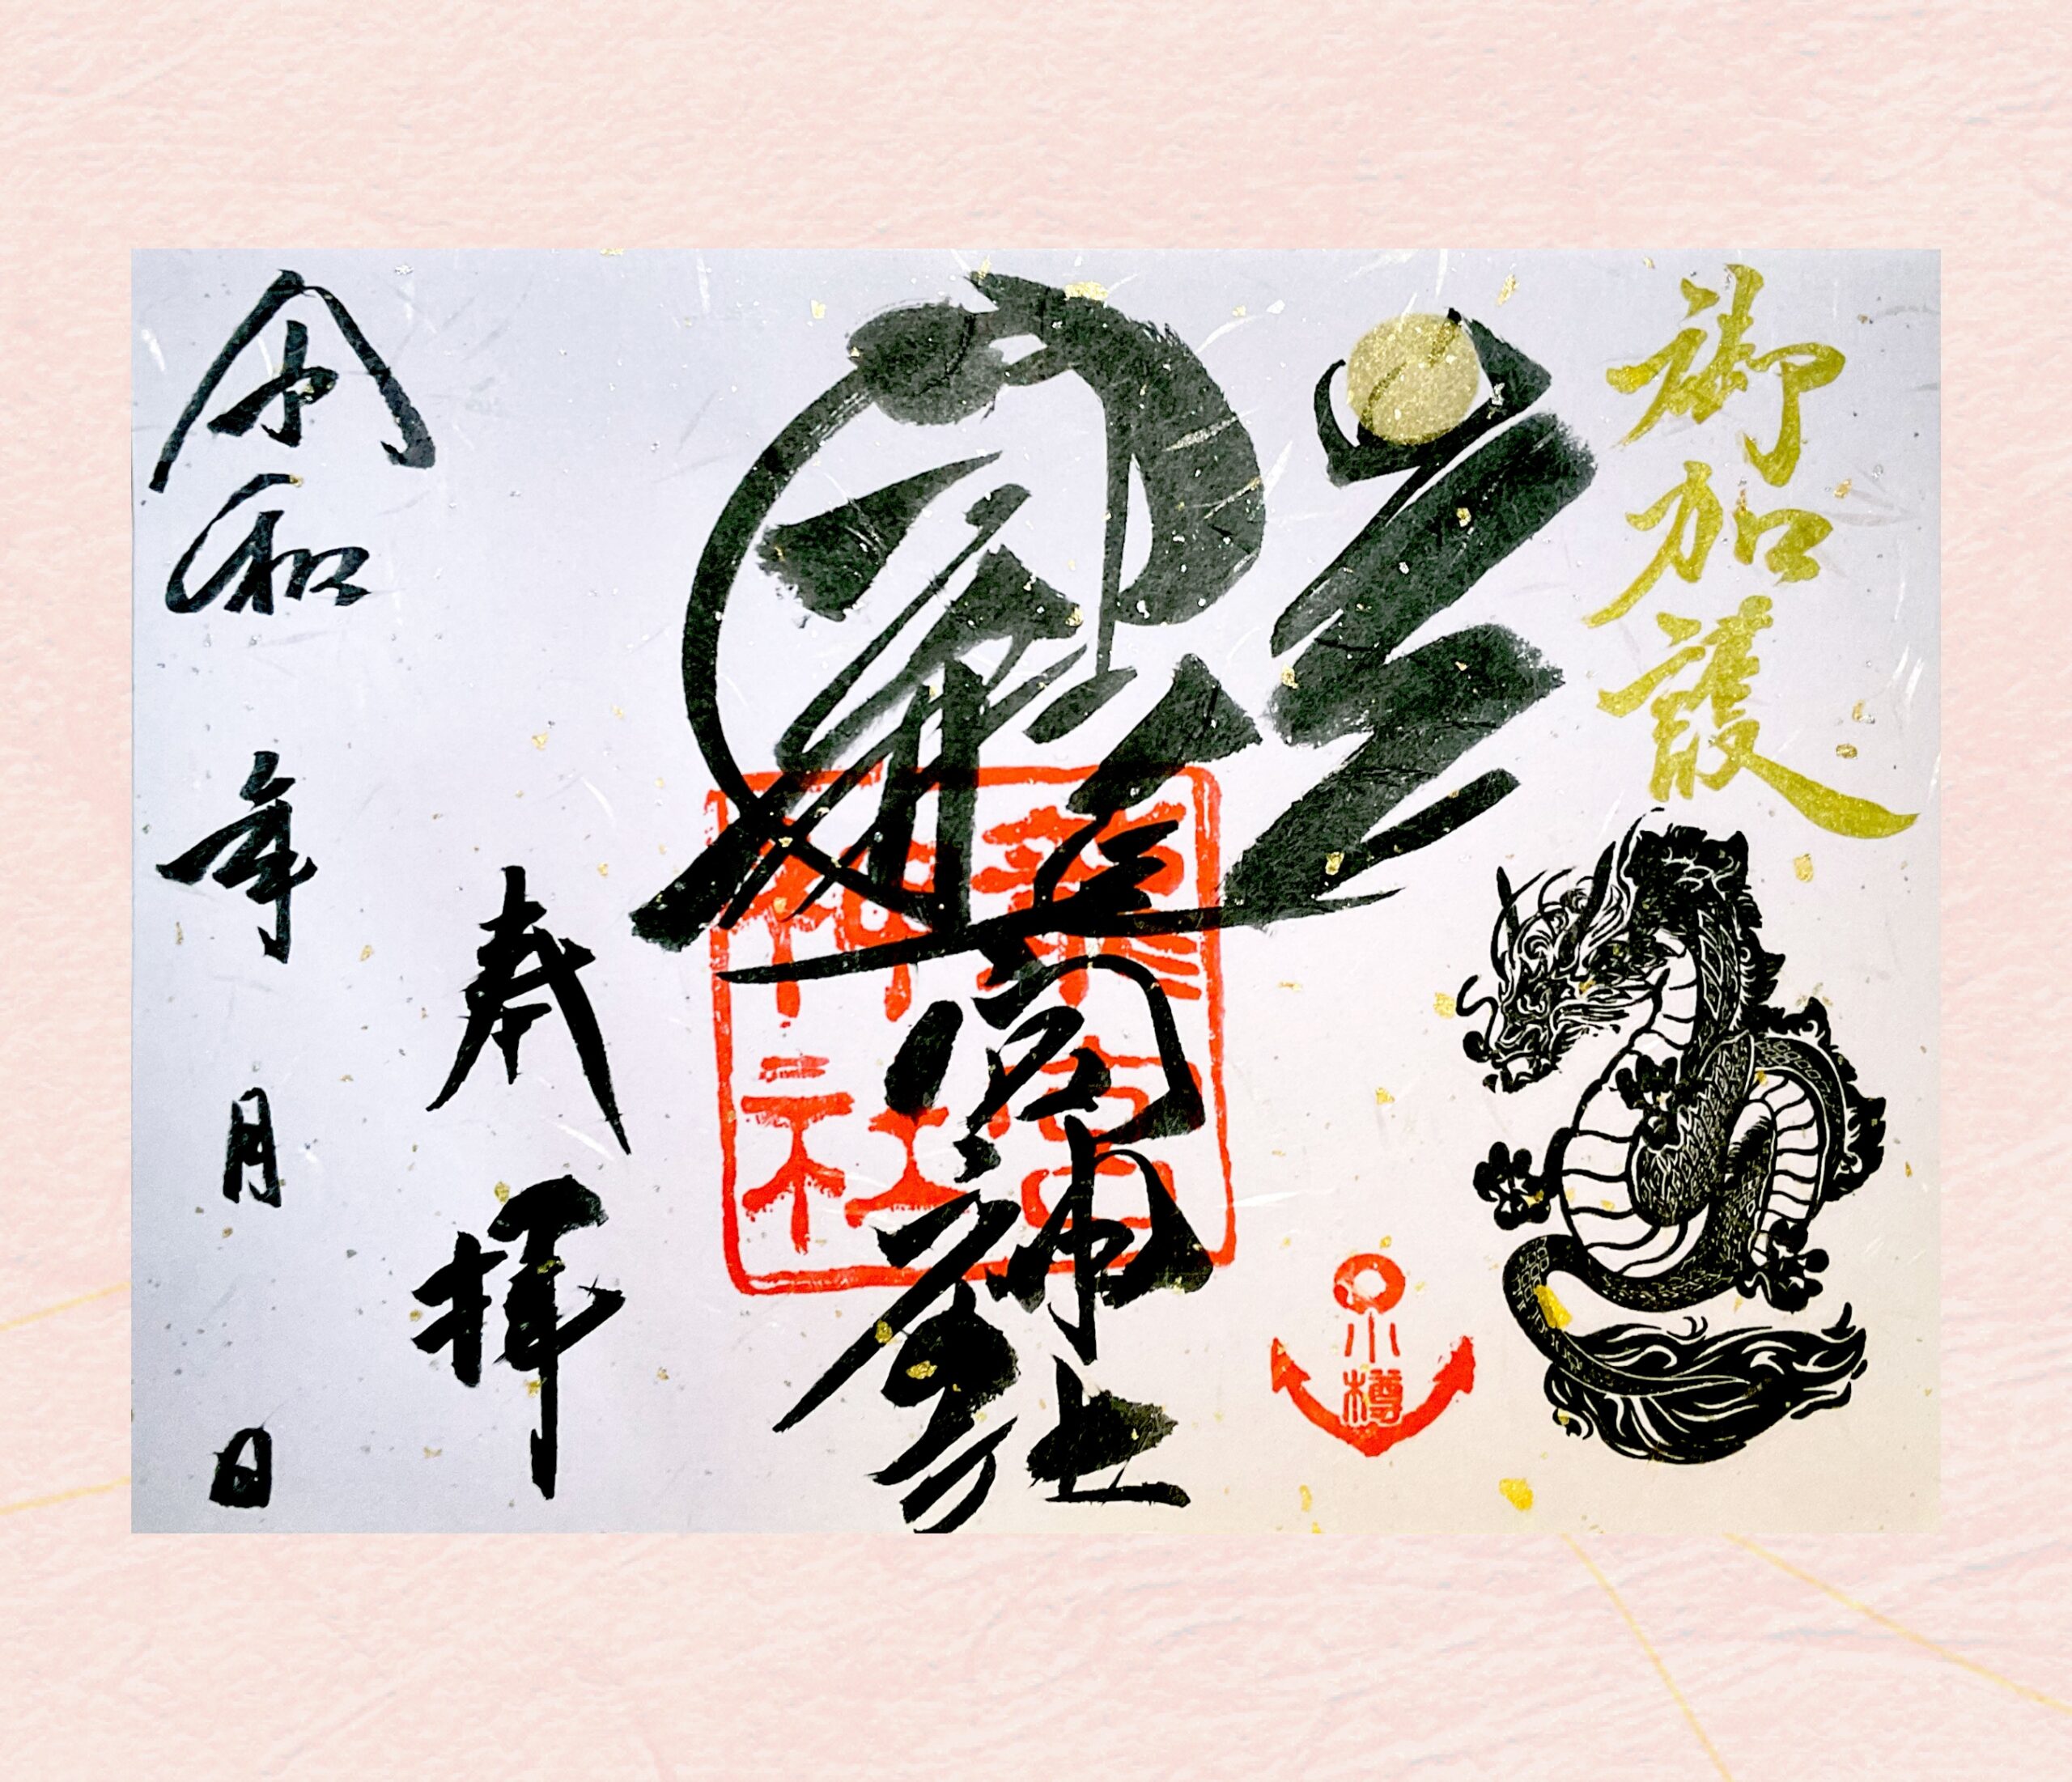 御加護
小樽
龍宮神社
龍宮
神社
奉拝
令和 年 月 日